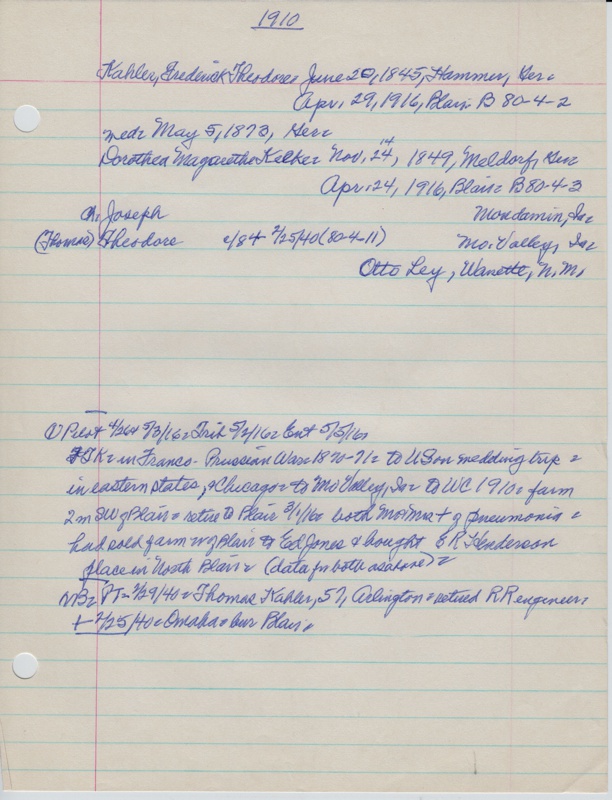 1910
Kahler, Frederick Theodore June 20, 1845, Hammer, Ger=
Apr. 29, 1916, Blair B 80-4-2
med= May 5, 1873, Ger=
Dorothea Magarethe Kelke= Nov. 24, 14 1849, Meldorf, Ger
Apr. 24, 1916, Blair= B 80-4-3
ch. Joseph Mondamin, Ia
(Thomas) Theodore c/84 - 2/25/40 (80-4-11) Mo. Valley, Ia
Otto Ley, Wanette, N. M.
① Pilot 4/26 + 5/3/16 = Trib 5/3/16 = Ent 5/5/16
FTK= in Franco-Prussian War= 1870-71= to US on wedding trip =
in eastern states, & Chicago= to Mo Valley, Ia= to WC 1910= farm
2 m SW of Blair= retire to Blair 3/1/16= both + of pneumonia =
had sold farm w of Blair to Ed Jones & bought E R Henderson
place in North Blair= (data fm both as above)=
B= PT= 2/29/40= Thomas Kahler, 57, Arlington= retired RR engineer=
+ 2/25/40= Omaha= bur Blair=